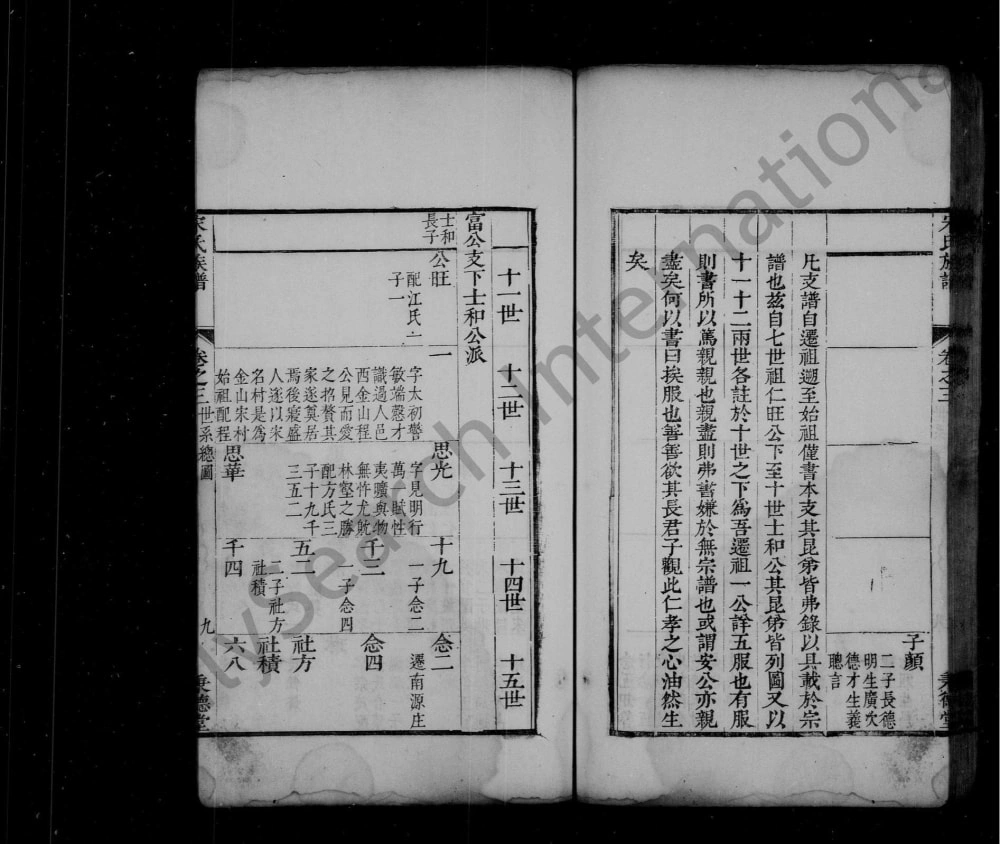 宋氏族譜
卷之三
秉德堂
子顏
二子長德
明生廣次
德才生義
聰言
凡支譜自遷祖遡至始祖僅書本支其昆弟皆弗錄以具載於宗
譜也茲自七世祖仁旺公下至十世士和公其昆弟皆列圖又以
十一十二兩世各註於十世之下為吾遷祖一公詳五服也有服
則書所以篤親親也親盡則弗書嫌於無宗譜也或謂安公亦親
盡矣何以書曰挨服也善善欲其長君子觀此仁孝之心油然生
矣
十一世
十二世
十三世
十四世
十五世
富公支下士和公派
士和
長子
公旺
配江氏
子一
一
字太初警
敏端慤才
識過人邑
西金山程
公見而愛
之招贅其
家遂奠居
焉後寖盛
人遂以宋
名村是為
金山宋村
始祖配程
思光
字見明行
萬一賦性
夷曠與物
無忤尤躭
林壑之勝
配方氏三
子十九千
三五二
思華
十九
一子念二
千三
一子念四
五二
二子社方
社積
千四
念二
遷南源庄
念四
社方
社積
六八
宋氏族譜
卷之三
世系總圖
九
秉德堂
FamilySearch International